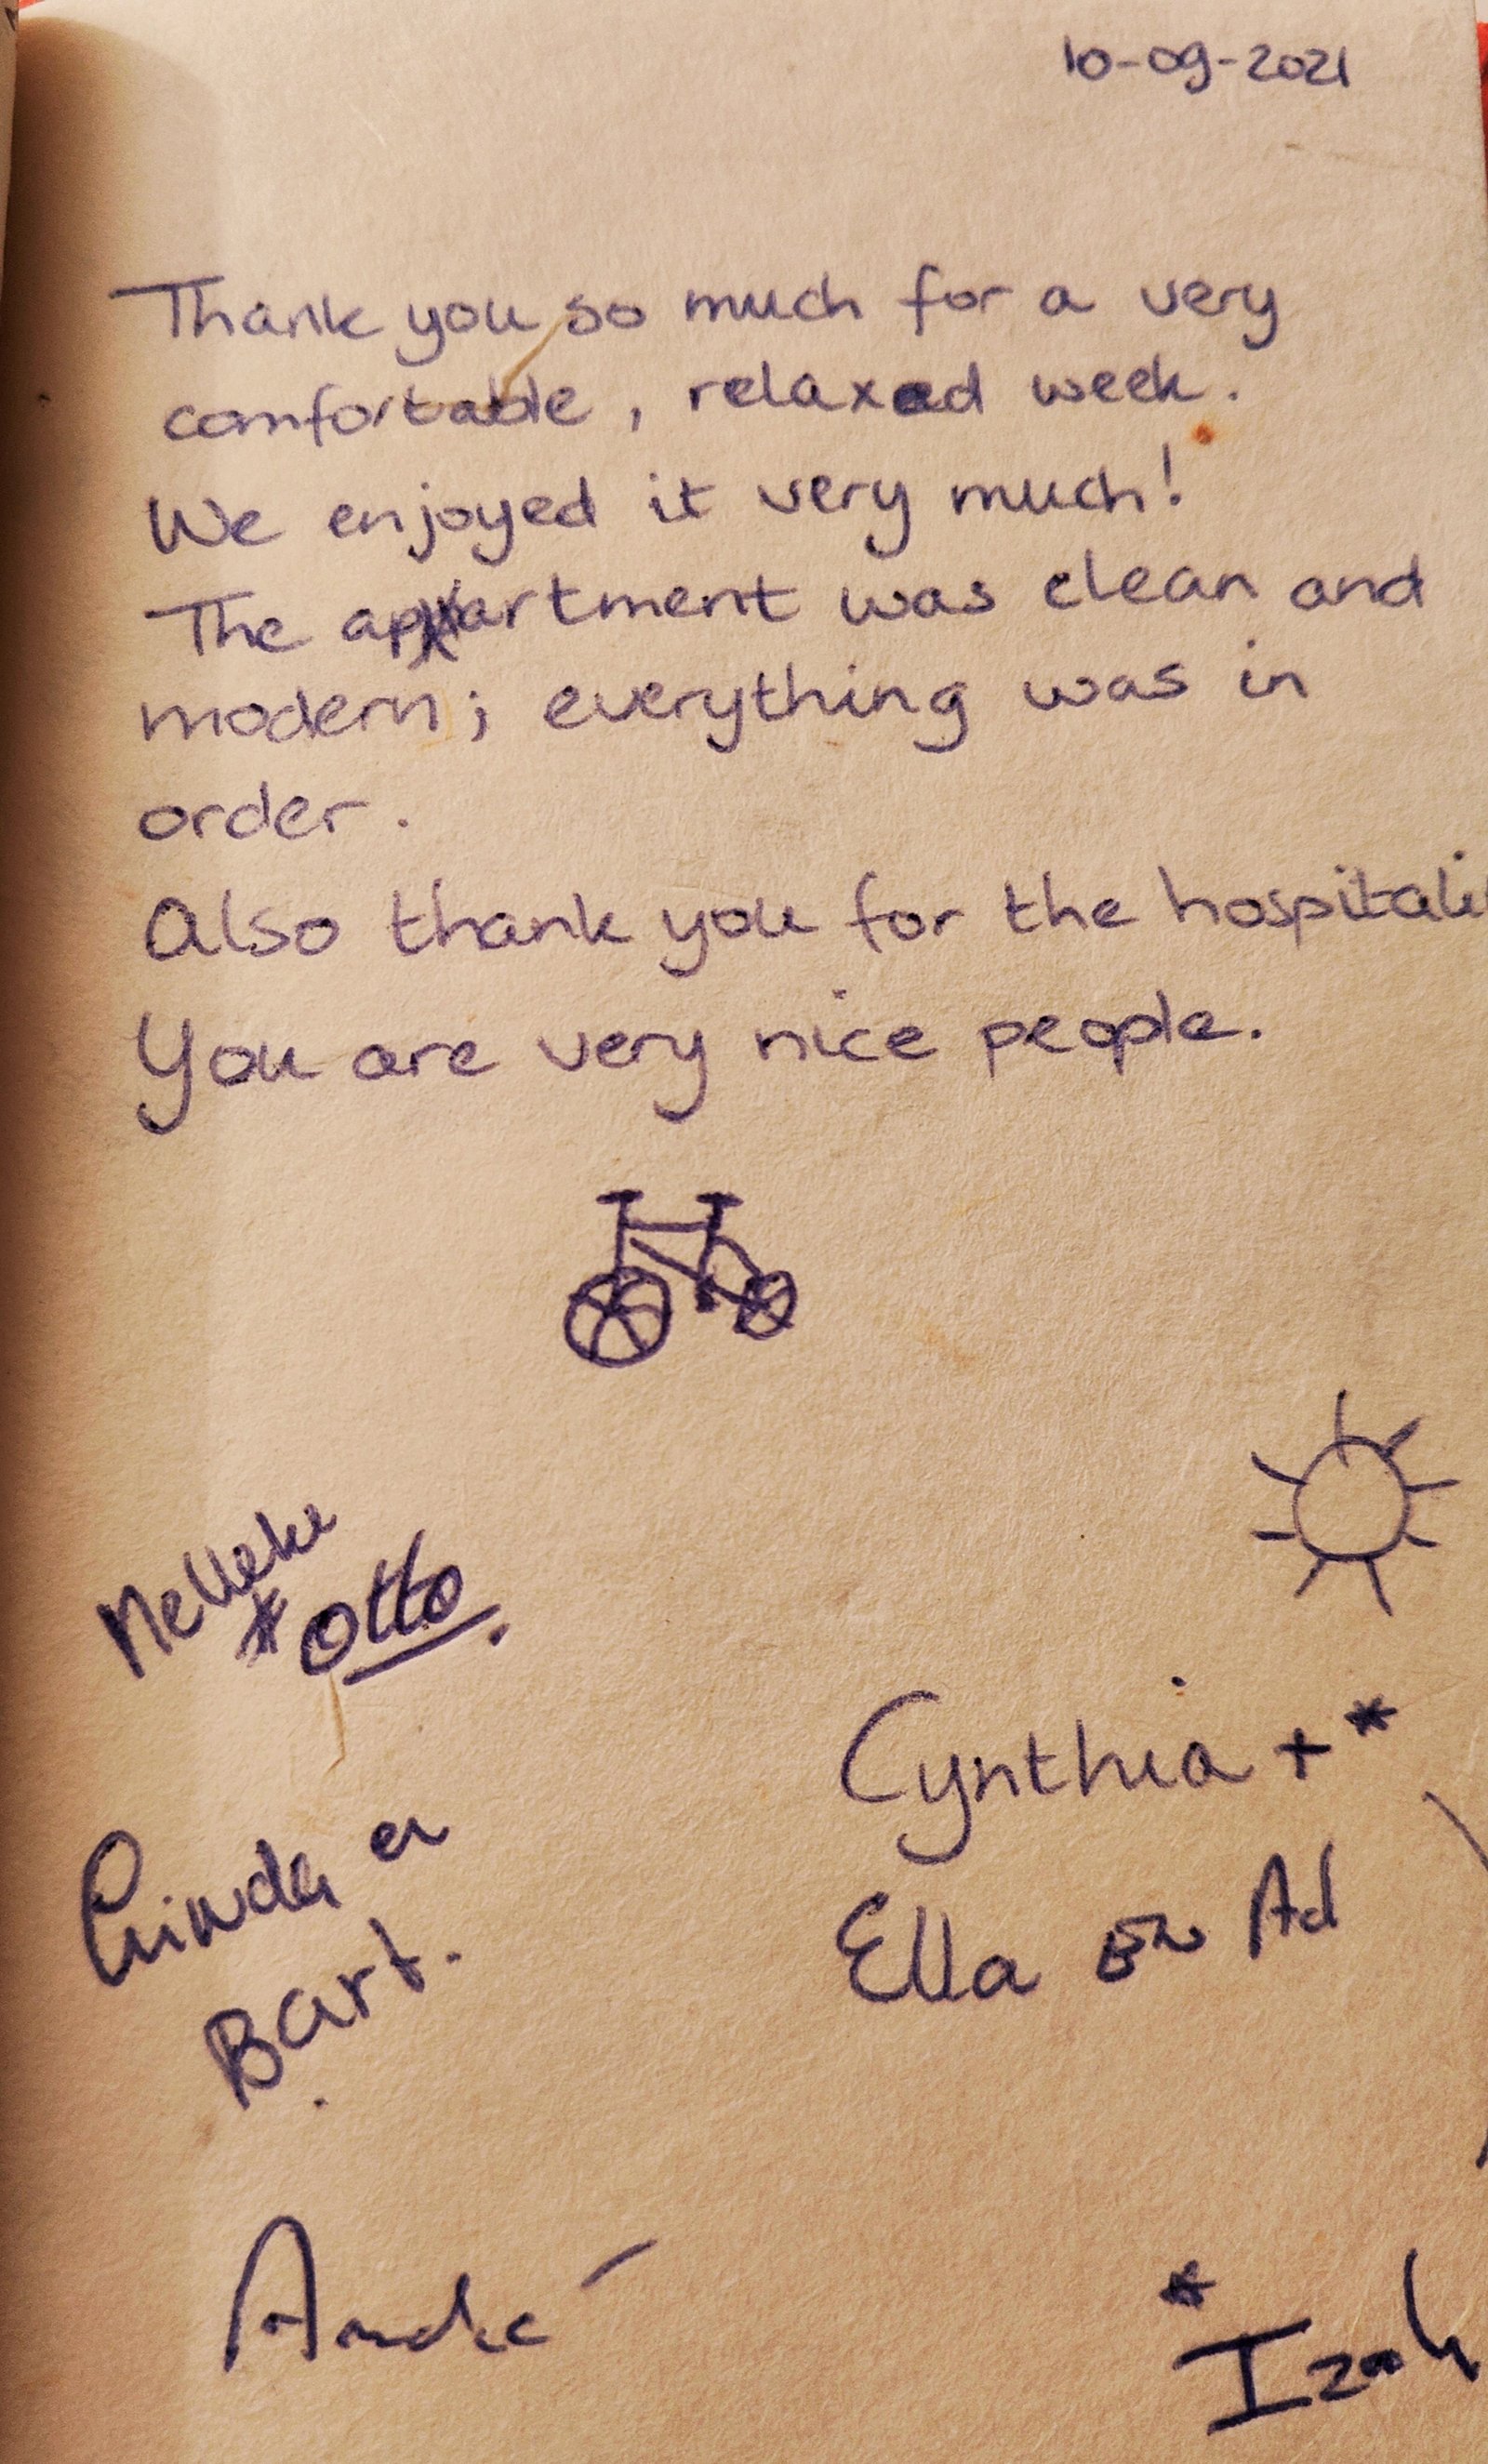 10-09-2021
Thank you so much for a very
comfortable, relaxed week.
We enjoyed it very much!
The apartment was clean and
modern; everything was in
order.
Also thank you for the hospitali
You are very nice people.
Otto.
Cynthia + *
en
Bart.
Ella en Ad
André
*